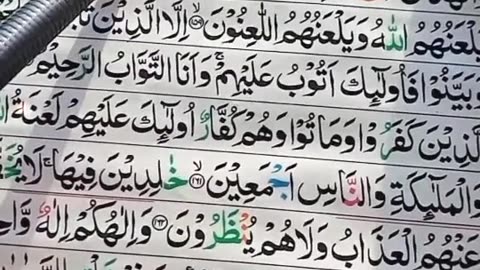 يَلْعَنُهُمُ اللّٰهُ وَيَلْعَنُهُمُ اللّٰعِنُوْنَ ۙ﴿۱۵۹﴾ اِلَّا الَّذِيْنَ
وَبَيَّنُوْا فَاُولٰٓئِكَ اَتُوْبُ عَلَيْهِمْ ۚ وَاَنَا التَّوَّابُ الرَّحِيْمُ
الَّذِيْنَ كَفَرُوْا وَمَاتُوْا وَهُمْ كُفَّارٌ اُولٰٓئِكَ عَلَيْهِمْ لَعْنَةُ
وَالْمَلٰٓئِكَةِ وَالنَّاسِ اَجْمَعِيْنَ ۙ﴿۱۶۱﴾ خٰلِدِيْنَ فِيْهَا ۚ لَا
عَنْهُمُ الْعَذَابُ وَلَا هُمْ يُنْظَرُوْنَ ﴿۱۶۲﴾ وَاِلٰهُكُمْ اِلٰهٌ